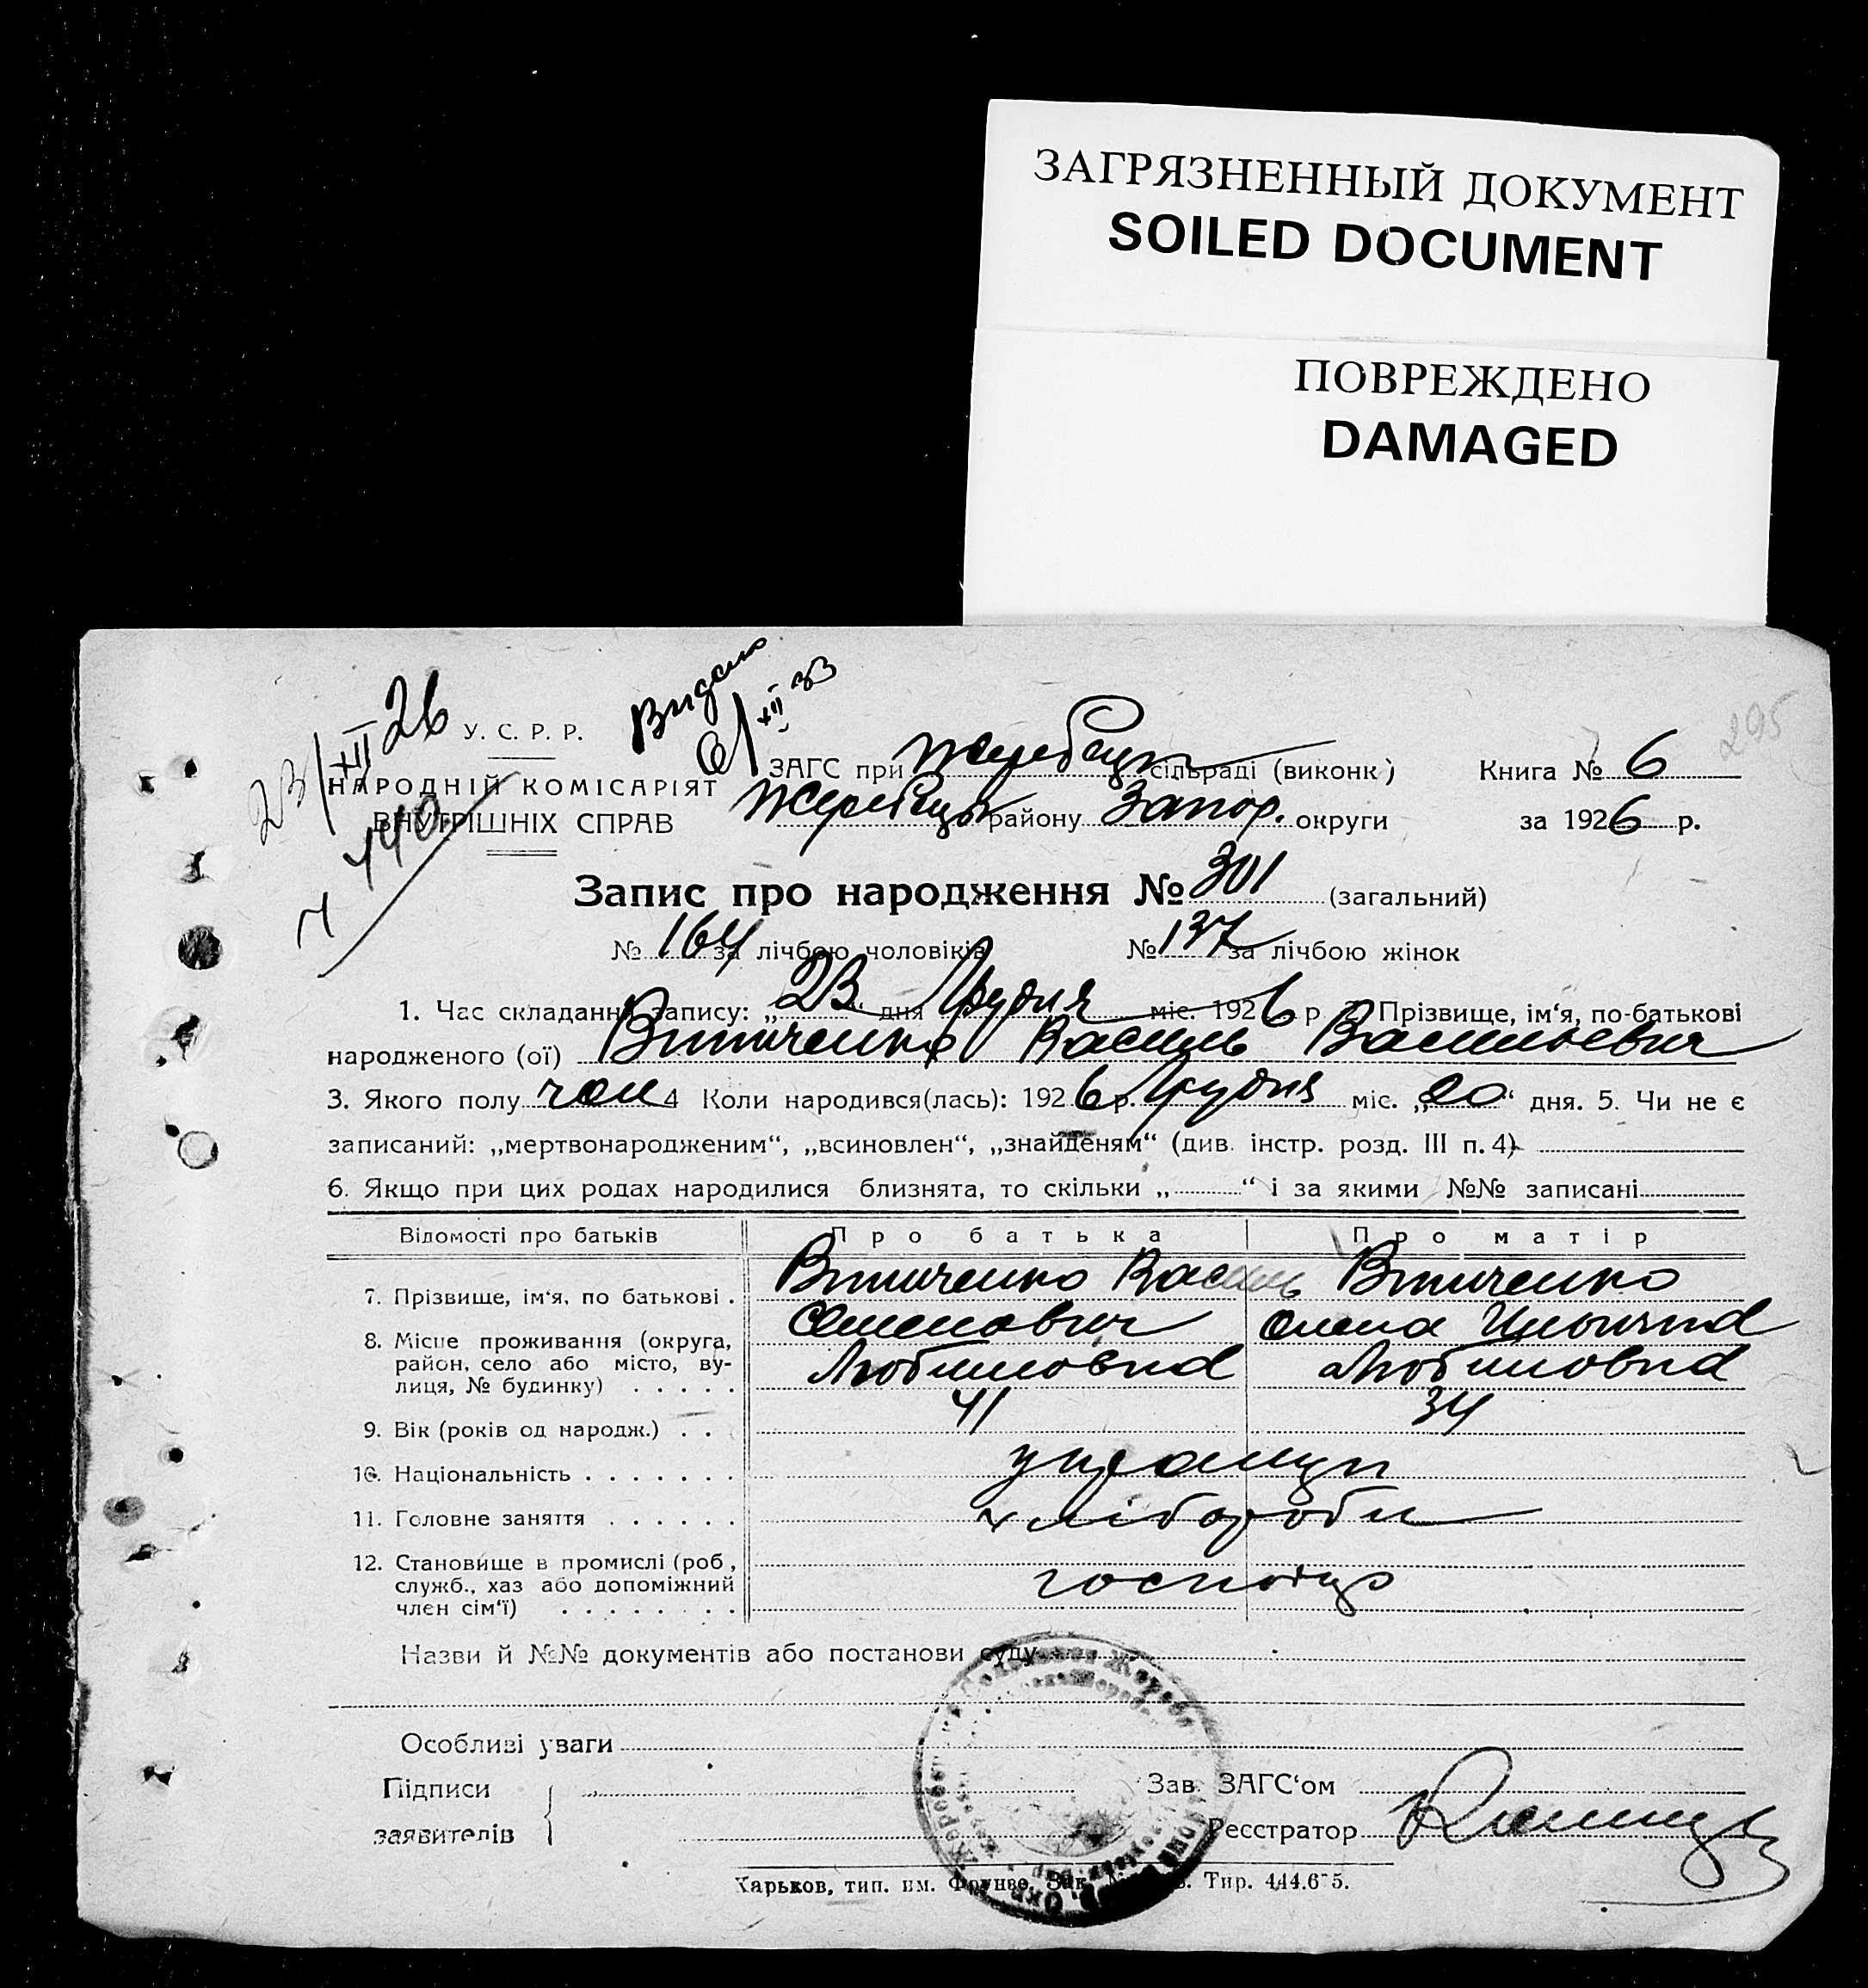 ЗАГРЯЗНЕННЫЙ ДОКУМЕНТ
SOILED DOCUMENT
ПОВРЕЖДЕНО
DAMAGED
23/XII 26
У. С. Р. Р.
НАРОДНІЙ КОМІСАРІЯТ
ВНУТРІШНІХ СПРАВ
Видано
XII 33
295
ЗАГС при Жеребецк сільраді (виконк)
Книга № 6
Жеребецьк району Запор. округи
за 1926 р.
Запис про народження № 301 (загальний)
№ 164 за лічбою чоловіків № 137 за лічбою жінок
1. Час складання запису: „23“ дня Грудня міс. 1926 р 2. Прізвище, ім‘я, по-батькові
народженого (ої) Витиченко Василь Васильевич
3. Якого полу чол 4 Коли народився(лась): 1926 р. Грудня міс. „20“ дня. 5. Чи не є
записаний: „мертвонародженим“, „всиновлен“, „знайденям“ (див. інстр. розд. III п. 4)
6. Якщо при цих родах народилися близнята, то скільки „ “ і за якими №№ записані
Відомості про батьків Про батька Про матір
7. Прізвище, ім‘я, по батькові . Витиченко Василь Витиченко
Семенович Олена
8. Місце проживання (округа,
район, село або місто, ву-
лиця, № будинку) . . . . . Любимовка Любимовка
9. Вік (років од народж.) . . 41 34
10. Національність . . . . . . . українці
11. Головне заняття . . . . . . хлібороби
12. Становище в промислі (роб,
служб., хаз або допоміжний
член сім‘ї) . . . . . . . .
Назви й №№ документів або постанови суду
Особливі уваги
Підписи
заявителів
Зав. ЗАГС‘ом
Реєстратор
Харьков, тип. им. Фрунзе. Зак. Тир. 444.675.